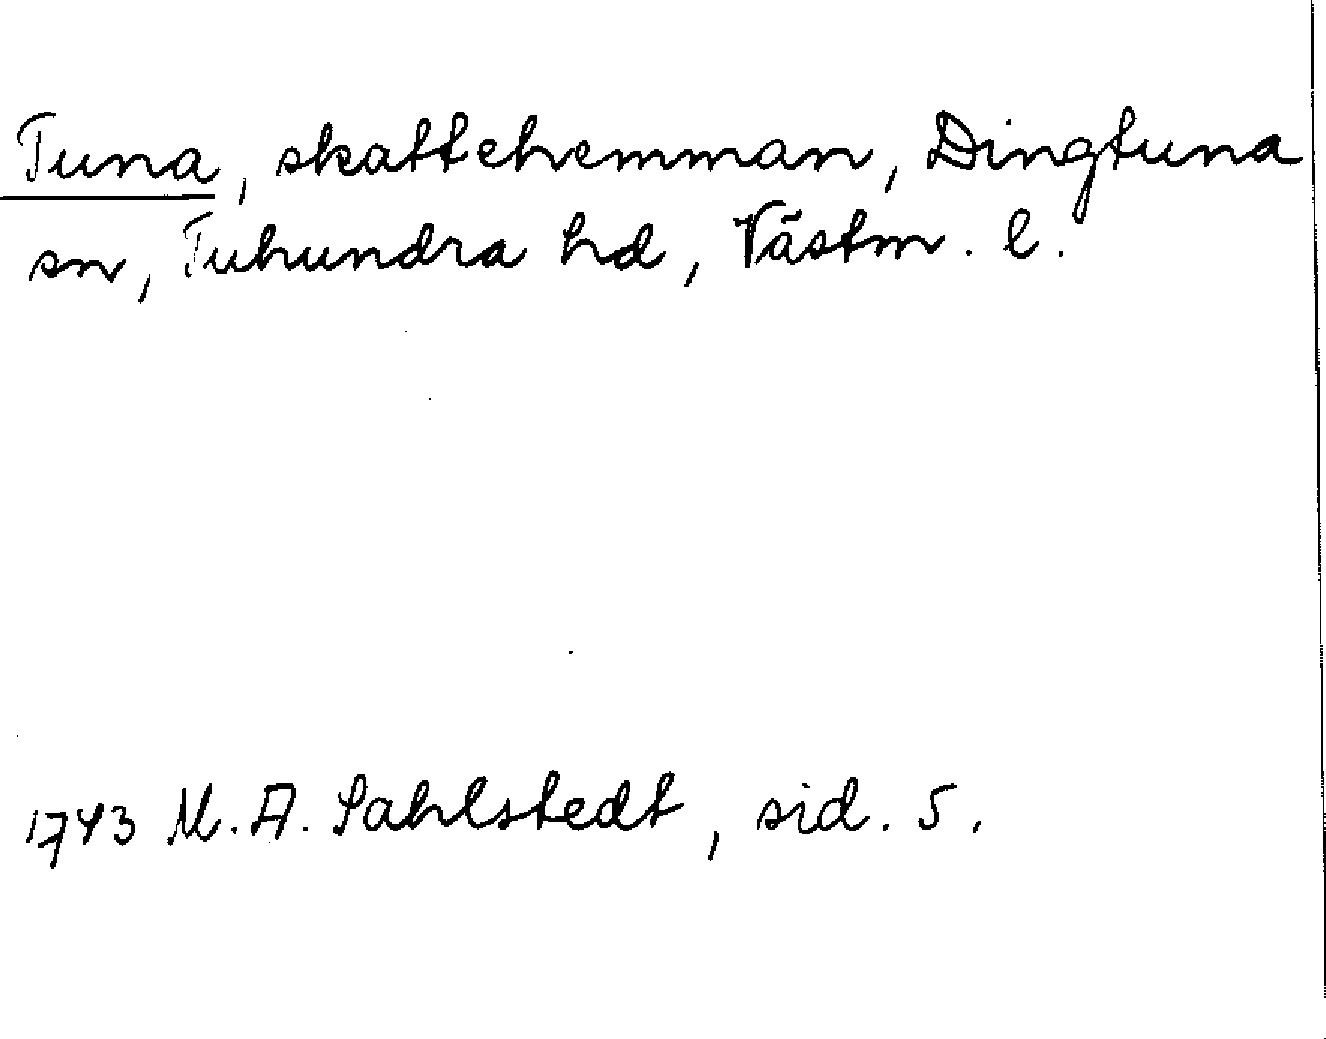 Tuna, skattehemman, Dingtuna
sn, Tuhundra hd, Västm. l.
1743 M. A. Sahlstedt, sid. 5.